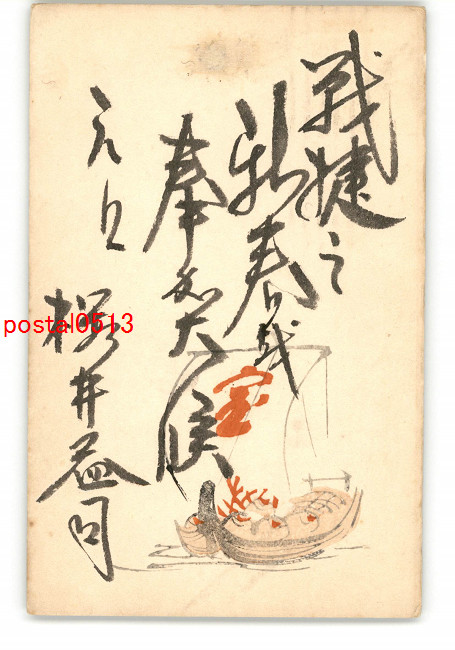 戦捷之
新春を
奉賀候
元旦
桜井益司
宝
postal0513